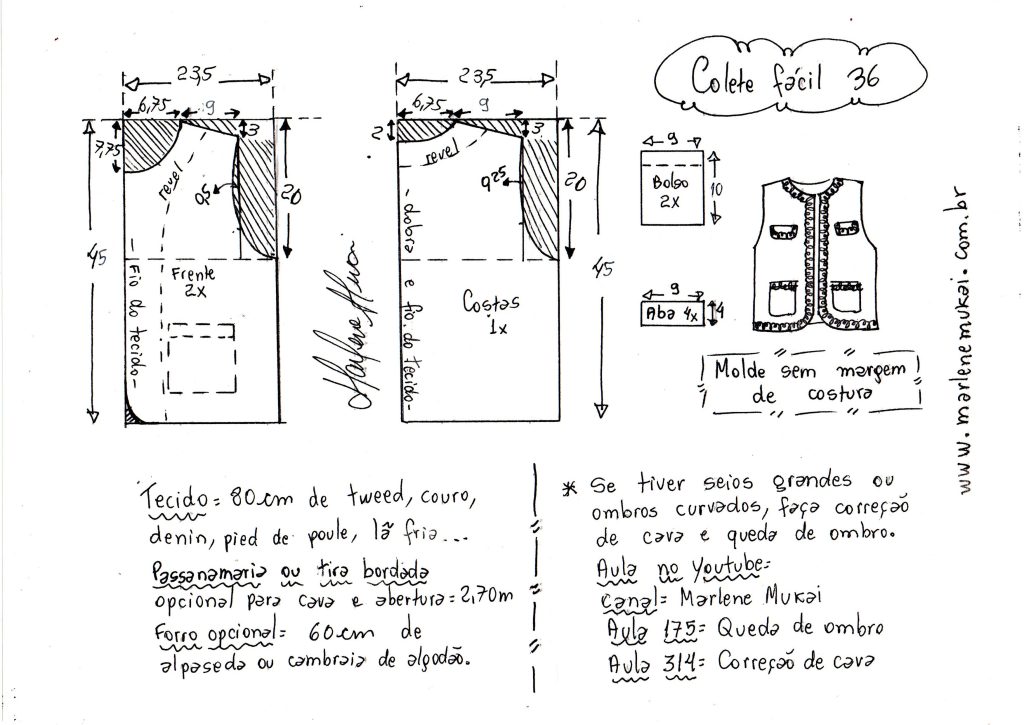 Colete fácil 36
23,5
6,75
9
7,75
3
20
45
revel
0,5
Frente
2x
- Fio do tecido -
23,5
6,75
9
2
3
20
45
revel
0,25
- dobra e fio do tecido -
Costas
1x
9
10
Bolso
2x
9
4
Aba 4x
Molde sem margem
de costura
www.marlenemukai.com.br
Tecido= 80cm de tweed, couro,
denin, pied de poule, lã fria...
Passanamaria ou tira bordada
opcional para cava e abertura=2,70m
Forro opcional= 60cm de
alpaseda ou cambraia de algodão.
* Se tiver seios grandes ou
ombros curvados, faça correção
de cava e queda de ombro.
Aula no Youtube=
canal= Marlene Mukai
Aula 175= Queda de ombro
Aula 314= Correção de cava